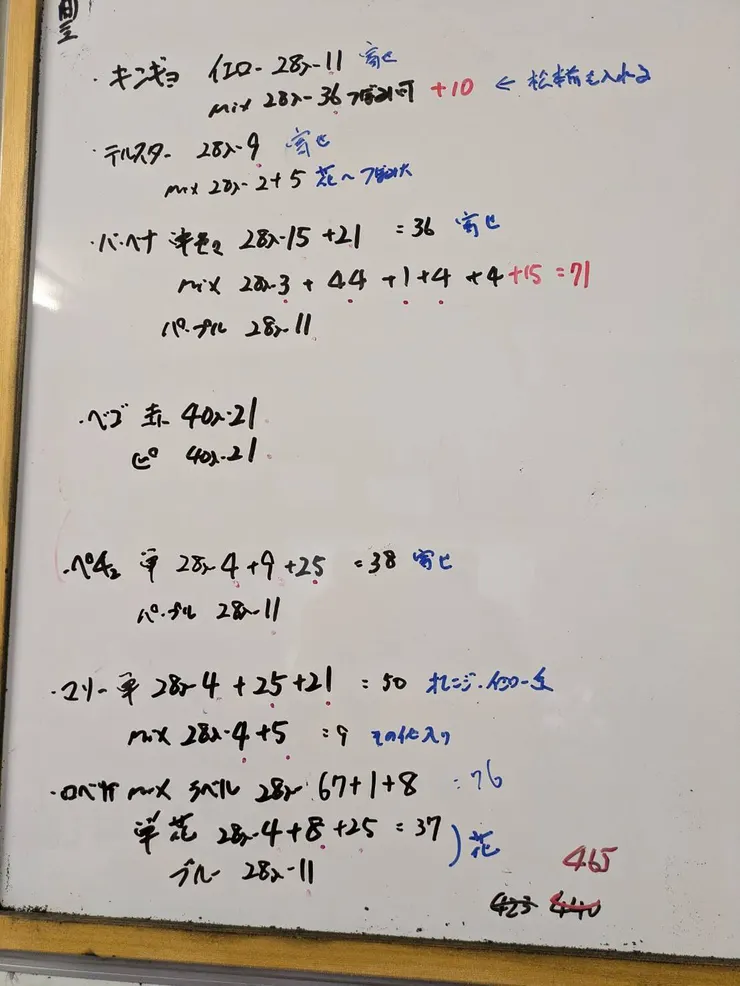 ・キンギョ イエロー 28入-11 寄せ
mix 28入-36 つぼみ可 +10 ← 松本前も入れる
・テルスター 28入-9 寄せ
mix 28入-2+5 花〜つぼみ大
・バーベナ 単色 28入-15 +21 =36 寄せ
mix 28入-3 + 44 +1 +4 +4 +15 =71
パープル 28入-11
・ベゴ 赤 40入-21
ピ 40入-21
・ペチュ 単 28入-4+9+25 =38 寄せ
パープル 28入-11
・ユリー 単 28入-4 +25+21 =50 オレンジ・イエロー
mix 28入-4+5 =9 その他入り
・ロベリア mix ラベル 28入 67+1+8 =76
単花 28入-4+8+25 =37 )花
ブルー 28入-11
465
423 440